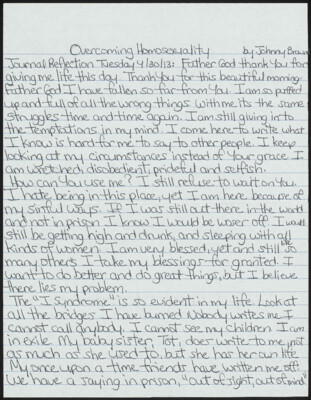 Overcoming Homosexuality by Johnny Brown
Journal Reflection Tuesday 4/30/13: Father God thank you for
giving me life this day. Thank you for this beautiful morning.
Father God I have fallen so far from You. I am so puffed
up and full of all the wrong things. With me its the same
struggles time and time again. I am still giving in to
the temptations in my mind. I come here to write what
I know is hard for me to say to other people. I keep
looking at my circumstances instead of Your grace. I
am wretched, disobedient, prideful and selfish.
How can You use me? I still refuse to wait on You.
I hate being in this place, yet I am here because of
my sinful ways. If I was still out there in the world
and not in prison I know I would be worser off. I would
still be getting high and drunk, and sleeping with all
kinds of women. I am very blessed, yet and still so
many others I take my blessings for granted. I
want to do better and do great things, but I believe
there lies my problem.
The "I syndrome" is so evident in my life. Look at
all the bridges I have burned. Nobody writes me. I
cannot call anybody. I cannot see my children. I am
in exile. My baby sister, Tot, does write to me, not
as much as she used to, but she has her own life.
My once upon a time friends have written me off.
We have a saying in prison, "out of sight, out of mind"